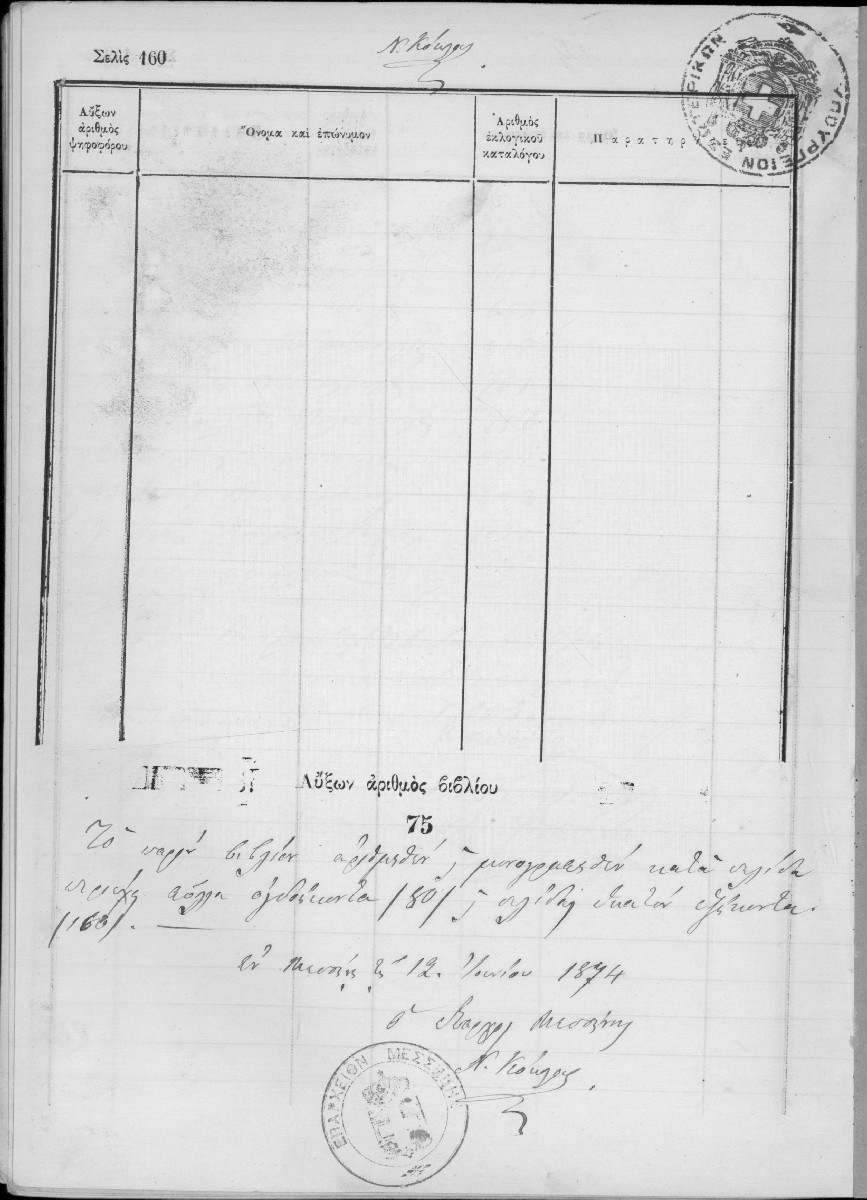 Σελὶς 160
Ν. Κόκλας
Αὔξων ἀριθμὸς ψηφοφόρου
Ὄνομα καὶ ἐπώνυμον
Ἀριθμὸς ἐκλογικοῦ καταλόγου
Παρατηρ
ΥΠΟΥΡΓΕΙΟΝ ΕΣΩΤΕΡΙΚΩΝ
Αὔξων ἀριθμὸς βιβλίου
75
Τὸ παρὸν βιβλίον ἀριθμηθὲν μονογραφηθὲν κατὰ σελίδα
περιέχει φύλλα ὀγδοήκοντα /80/ σελίδας ἑκατὸν ἑξήκοντα
/160/.
Ἐν Μεσσήνῃ τῇ 12. Ἰουνίου 1874
ὁ Ἔπαρχος Μεσσήνης
Ν. Κόκλας
ΕΠΑΡΧΕΙΟΝ ΜΕΣΣΗΝΗΣ